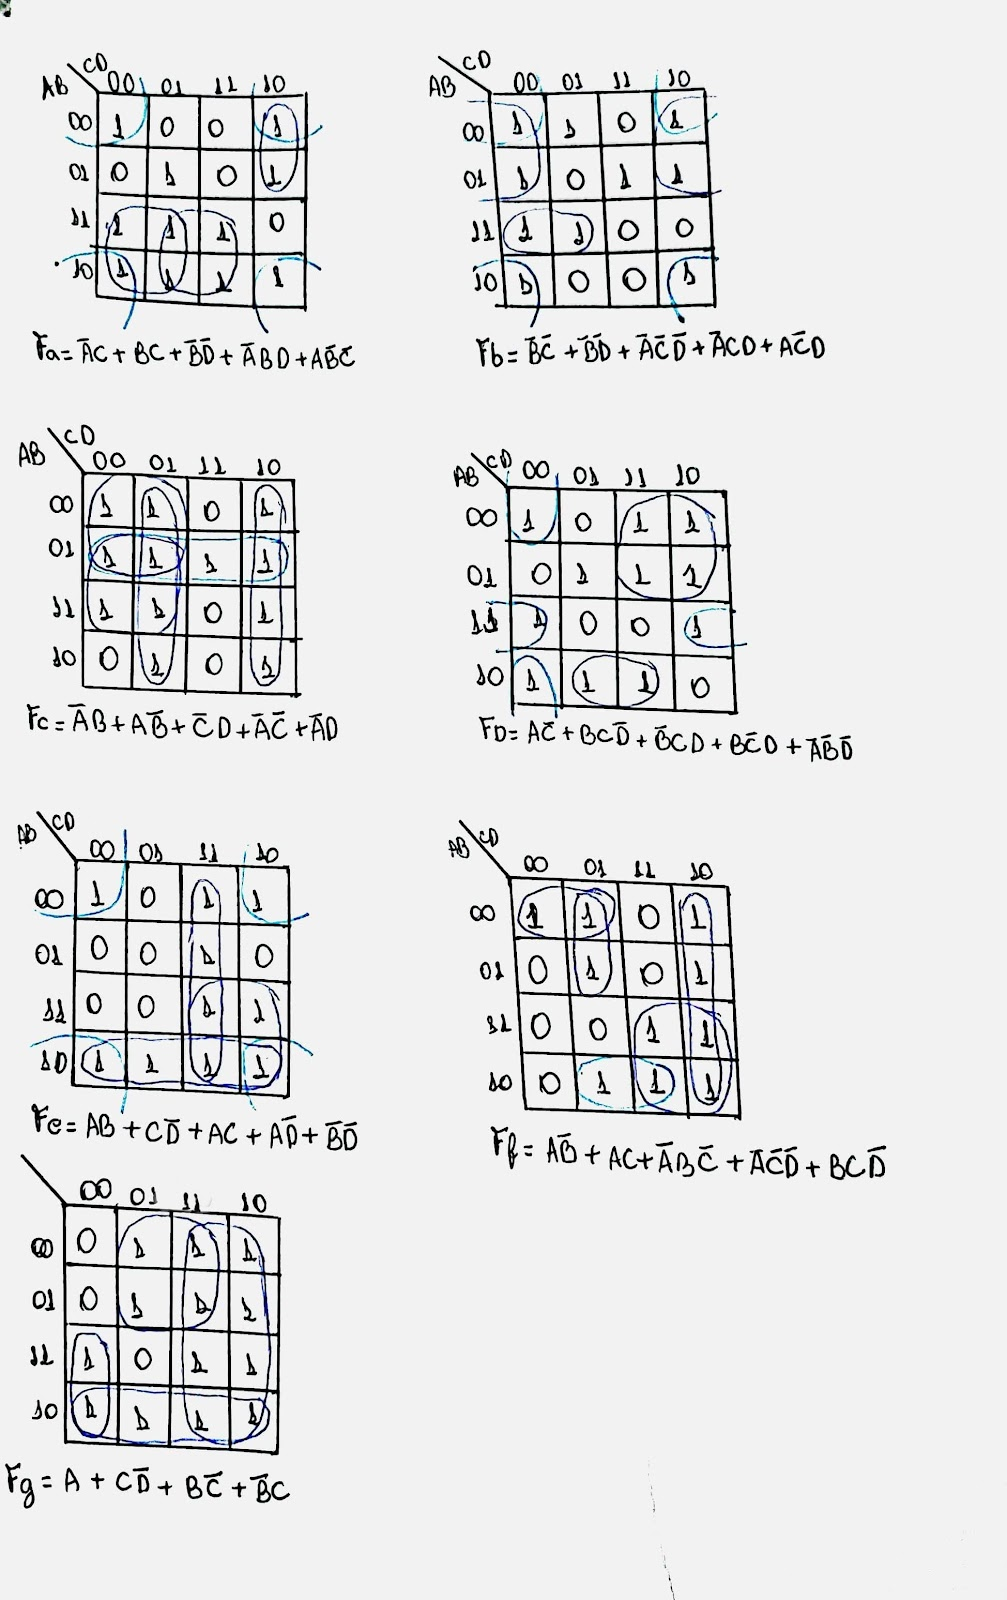 CD
AB 00 01 11 10
00 1 0 0 1
01 0 1 0 1
11 1 1 1 0
10 1 1 1 1
Fa = A̅C + BC + B̅D̅ + A̅BD + AB̅C̅
CD
AB 00 01 11 10
00 1 1 0 1
01 1 0 1 1
11 1 1 0 0
10 1 0 0 1
Fb = B̅C̅ + B̅D + A̅C̅D̅ + A̅CD + AC̅D
CD
AB 00 01 11 10
00 1 1 0 1
01 1 1 1 1
11 1 1 0 1
10 0 1 0 1
Fc = A̅B + AB̅ + C̅D + A̅C̅ + A̅D
CD
AB 00 01 11 10
00 1 0 1 1
01 0 1 1 1
11 1 0 0 1
10 1 1 1 0
FD = AC̅ + BCD̅ + B̅CD + BC̅D + A̅B̅D̅
CD
AB 00 01 11 10
00 1 0 1 1
01 0 0 1 0
11 0 0 1 1
10 1 1 1 1
Fe = AB + CD̅ + AC + AD̅ + B̅D̅
CD
AB 00 01 11 10
00 1 1 0 1
01 0 1 0 1
11 0 0 1 1
10 0 1 1 1
Ff = AB̅ + AC + A̅BC̅ + A̅C̅D̅ + BCD̅
00 01 11 10
00 0 1 1 1
01 0 1 1 1
11 1 0 1 1
10 1 1 1 1
Fg = A + CD̅ + BC̅ + B̅C